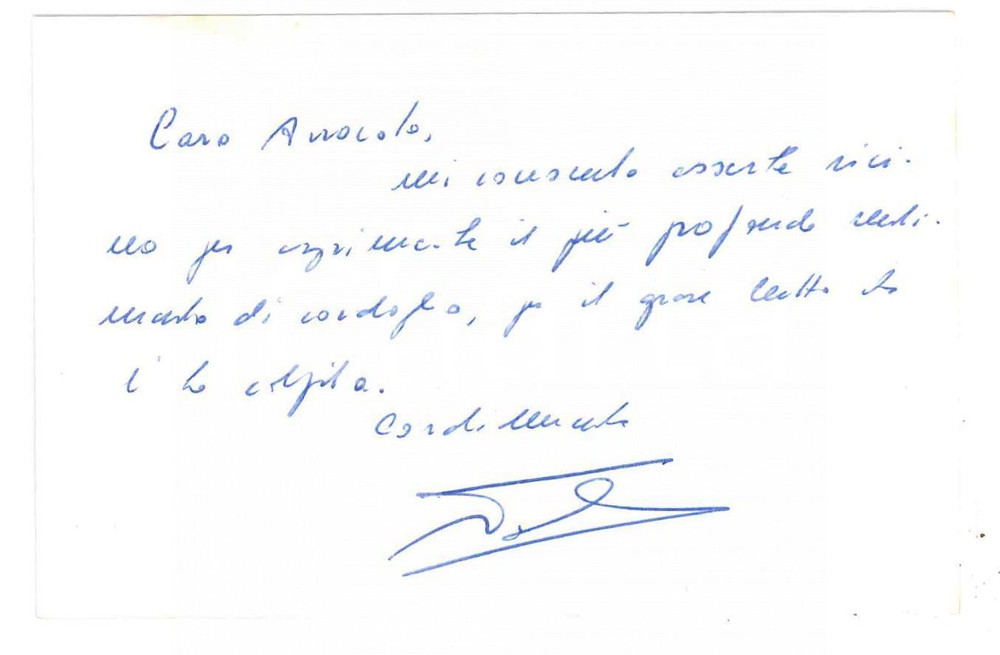 Caro Avvocato,
mi consenta esserle vici-
no per esprimerle il più profondo senti-
mento di cordoglio, per il grave lutto che
l'ha colpita.
Cordialmente